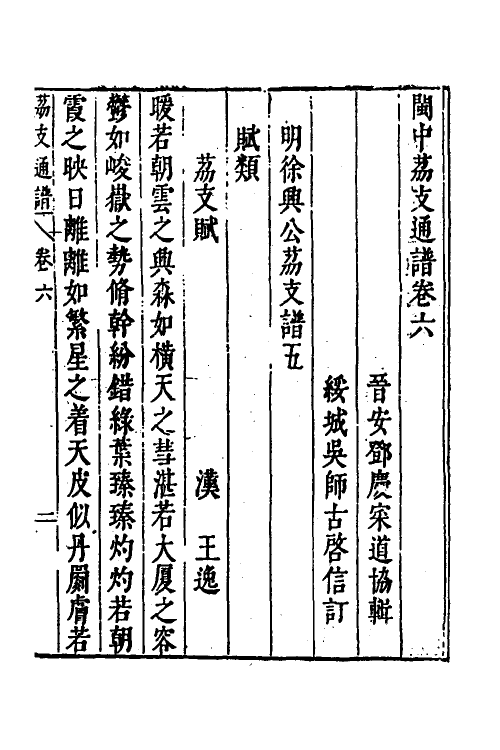 閩中荔支通譜卷六
晉安鄧慶寀道協輯
綏城吳師古啓信訂
明徐興公荔支譜五
賦類
荔支賦　漢　王逸
暖若朝雲之興森如橫天之彗湛若大厦之容
鬱如峻嶽之勢脩幹紛錯綠葉臻臻灼灼若朝
霞之映日離離如繁星之着天皮似丹罽膚若
荔支通譜　卷六　二